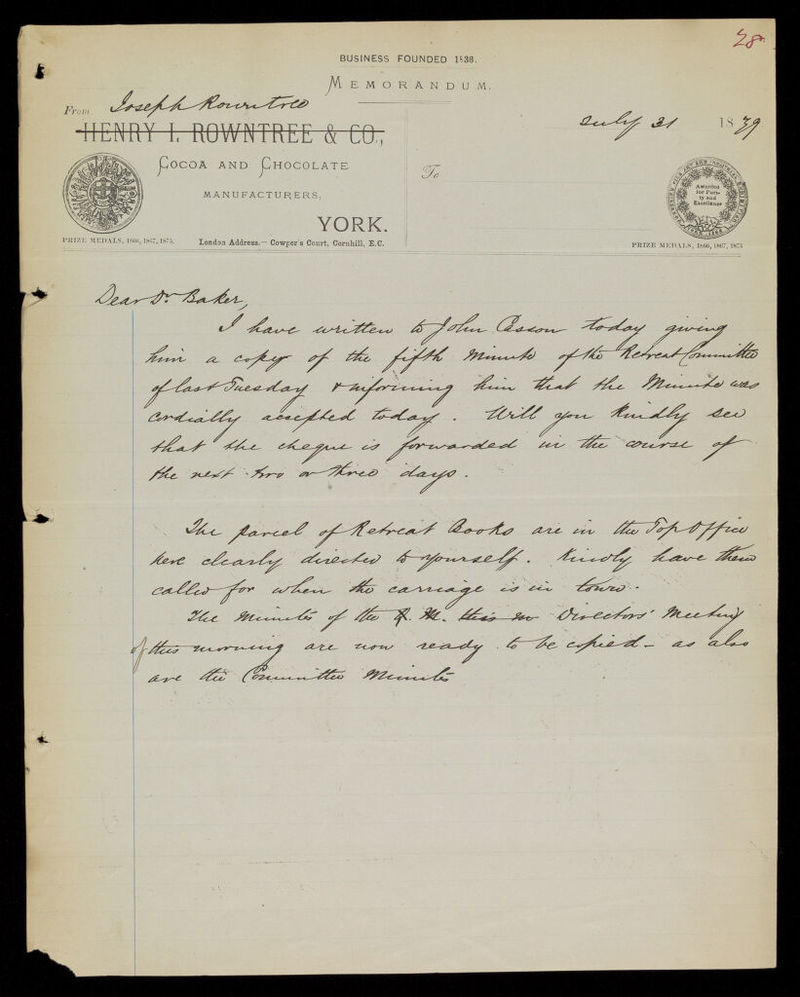 28
BUSINESS FOUNDED 1838.
MEMORANDUM.
From Joseph Rowntree
HENRY I. ROWNTREE & CO.,
COCOA AND CHOCOLATE
MANUFACTURERS,
YORK.
London Address.— Cowper's Court, Cornhill, E.C.
PRIZE MEDALS, 1866, 1867, 1875.
July 31 1879
To
Awarded
for Puri-
ty and
Excellence
PRIZE MEDALS, 1866, 1867, 1875
Dear Dr Baker,
I have written to John Casson today giving
him a copy of the fifth Minute of the Retreat Committee
of last Tuesday & informing him that the Minute was
cordially accepted today. Will you kindly see
that the cheque is forwarded in the course of
the next two or three days.
The parcel of Retreat Books are in the Top Office
here clearly directed to yourself. Kindly have them
called for when the carriage is in town.
The Minutes of the Q. M. this m Directors' Meeting
of this morning are now ready to be copied - as also
are the Committee Minutes